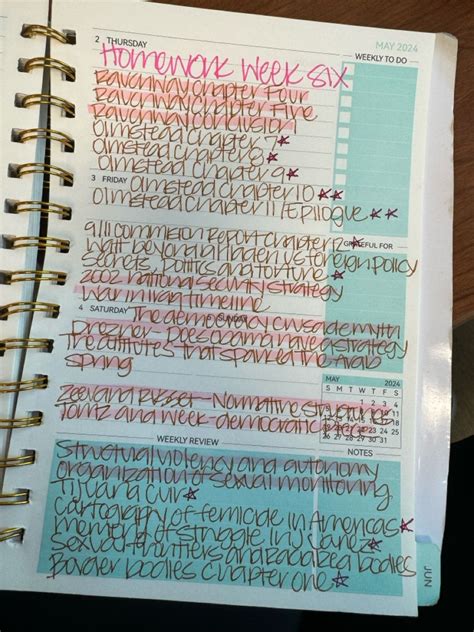 2 THURSDAY MAY 2024
WEEKLY TO DO
Homework Week Six
Ravenway Chapter Four
Ravenway Chapter Five
Ravenway Conclusion
Olmstead Chapter 7 ☆
Olmstead Chapter 8 ☆
Olmstead Chapter 9 ☆
3 FRIDAY
Olmstead Chapter 10 ☆☆
Olmstead Chapter 11/Epilogue ☆☆
9/11 Commision Report Chapter 12 ☆
GRATEFUL FOR
Walt beyond Bin laden us foreign policy
Secrets, Politics and torture ☆
2002 national security strategy
War in Iraq timeline
4 SATURDAY 5 SUNDAY
The democracy crusade myth
Drezner - Does obama have a strategy
The attitudes that sparked the Arab
Spring
MAY 2024
S M T W T F S
Zeev and Risser - Normative Structures
Tomz and Week - democratic peace
26 27 28 29 30 31
WEEKLY REVIEW
NOTES
Structural violency and autonomy
Organization of sexual monitoring
Tijuana Cur ☆
Cartography of femicide in Americas ☆
memories of struggle in Juarez ☆
Sexual and racialized bodies
Border bodies Chapter One ☆
JUN